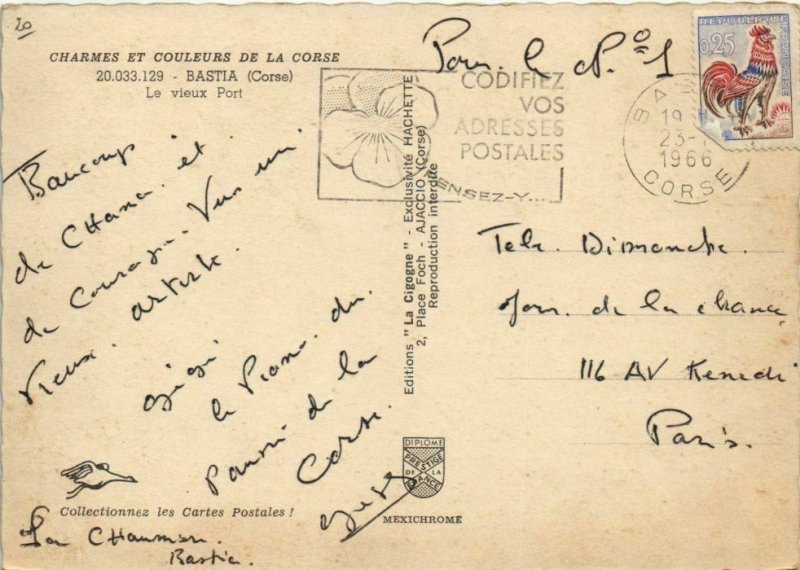 20
CHARMES ET COULEURS DE LA CORSE
20.033.129 - BASTIA (Corse)
Le vieux Port
Pour. le N°1
CODIFIEZ
VOS
ADRESSES
POSTALES
PENSEZ-Y...
REPUBLIQUE FRANCAISE
0,25
19
23-
1966
CORSE
Baucoup
de CHance. et
de Courage. Vers un
Vieux. artiste.
gigi
le Piano. du
Pauvre de la
Corse.
Editions "La Cigogne" - Exclusivité HACHETTE
2, Place Foch - AJACCIO (Corse)
Reproduction interdite
Tele. Dimanche.
Jour. de la chance
116 AV Kenedi
Paris.
DIPLOME
PRESTIGE
DE LA
FRANCE
MEXICHROME
Collectionnez les Cartes Postales !
La CHaumiere.
Bastia.